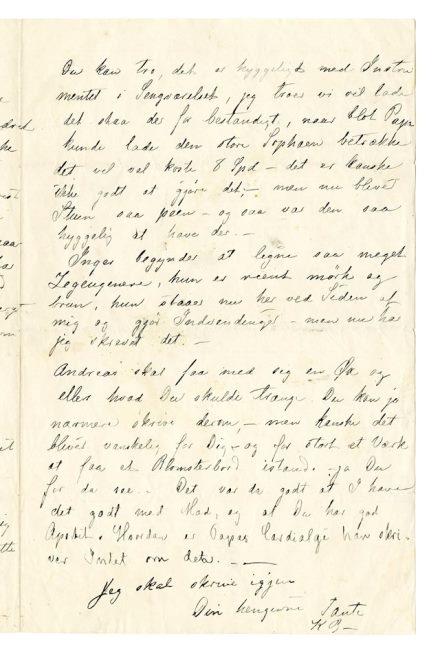 Du kan tro, det er hyggeligt med Instru
mentet i Sengværelset, jeg troer vi vil lade
det staa der for bestandigt, naar blot Papa
kunde lade den store Sophaen betrække
det vil vel koste 8 Spd – det er kanske
ikke godt at gjøre det, – men nu blever
Stuen saa pæn – og saa var den saa
hyggelig at have der. –
Inger begynder at ligne saa meget
hun er mørk og
brun, hun staaer nu her ved Siden af
mig og gjør Indvendinger – men nu har
jeg skrevet det. –
Andreas skal faa med seg en Øx og
eller hvad Du skulde trænge. Du kan jo
nærmere skrive derom, – men kanske det
bliver vanskelig for Dig, – og for stort et Værk
at faa et Blomsterbord istand. – ja Du
får da see. – Det var da godt at I have
det godt med Mad, og at Du har god
Apetit. Hvordan er Papas Cardialgi han skri-
ver Intet om dette. –
Jeg skal skrive igjen
Din hengivne Tante
K B –